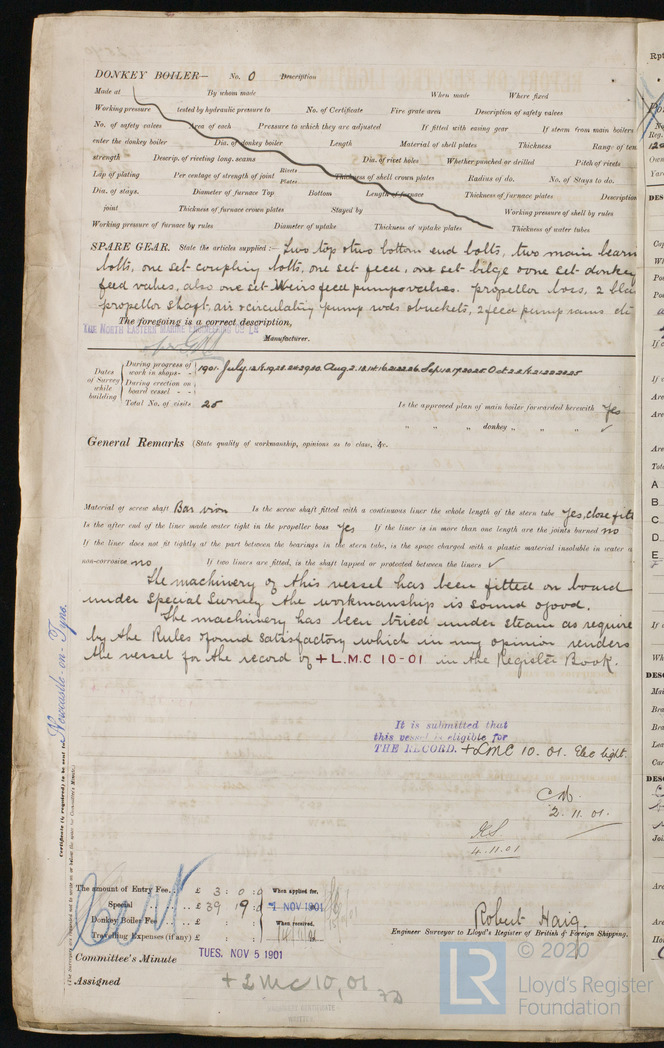 DONKEY BOILER— No. 0 Description
Made at By whom made When made Where fixed
Working pressure tested by hydraulic pressure to No. of Certificate Fire grate area Description of safety valves
No. of safety valves Area of each Pressure to which they are adjusted If fitted with easing gear If steam from main boilers
enter the donkey boiler Dia. of donkey boiler Length Material of shell plates Thickness Range of ten
strength Descrip. of riveting long. seams Dia. of rivet holes Whether punched or drilled Pitch of rivets
Lap of plating Per centage of strength of joint Rivets Plates Thickness of shell crown plates Radius of do. No. of Stays to do.
Dia. of stays. Diameter of furnace Top Bottom Length of furnace Thickness of furnace plates Description
joint Thickness of furnace crown plates Stayed by Working pressure of shell by rules
Working pressure of furnace by rules Diameter of uptake Thickness of uptake plates Thickness of water tubes
SPARE GEAR. State the articles supplied:— Two top & two bottom end bolts, two main bearin
bolts, one set coupling bolts, one set feed, one set bilge & one set donkey
feed valves, also one set Weirs feed pump valves. propellor boss, 2 bla
propellor shaft, air & circulating pump rods & buckets, 2 feed pump rams etc
The foregoing is a correct description,
THE NORTH EASTERN MARINE ENGINEERING CO LD
Manufacturer.
Dates of Survey while building
During progress of work in shops - - 1901. July
During erection on board vessel - -
Total No. of visits 25 Is the approved plan of main boiler forwarded herewith Yes
" " " donkey " " " ✓
General Remarks (State quality of workmanship, opinions as to class, &c.
Material of screw shaft Bar iron Is the screw shaft fitted with a continuous liner the whole length of the stern tube Yes, close fits
Is the after end of the liner made water tight in the propeller boss yes If the liner is in more than one length are the joints burned no
If the liner does not fit tightly at the part between the bearings in the stern tube, is the space charged with a plastic material insoluble in water a
non-corrosive no If two liners are fitted, is the shaft lapped or protected between the liners ✓
The machinery of this vessel has been fitted on board
under Special Survey the workmanship is sound & good.
The machinery has been tried under steam as require
by the Rules & found satisfactory which in my opinion renders
the vessel for the record of + L.M.C 10-01 in the Register Book.
It is submitted that
this vessel is eligible for
THE RECORD. + LMC 10. 01. Elec light.
C.M.
2.11.01.
4.11.01
Newcastle-on-Tyne.
The amount of Entry Fee. . £ 3 : 0 : 0 When applied for,
Special . . . . £ 39 19 : 0 1 NOV 1901
Donkey Boiler Fee . . . £ : : When received,
Travelling Expenses (if any) £ : :
Robert Haig.
Engineer Surveyor to Lloyd's Register of British & Foreign Shipping.
Committee's Minute TUES. NOV 5 1901
Assigned + LMC 10,01
© 2020
LR
Lloyd's Register
Foundation